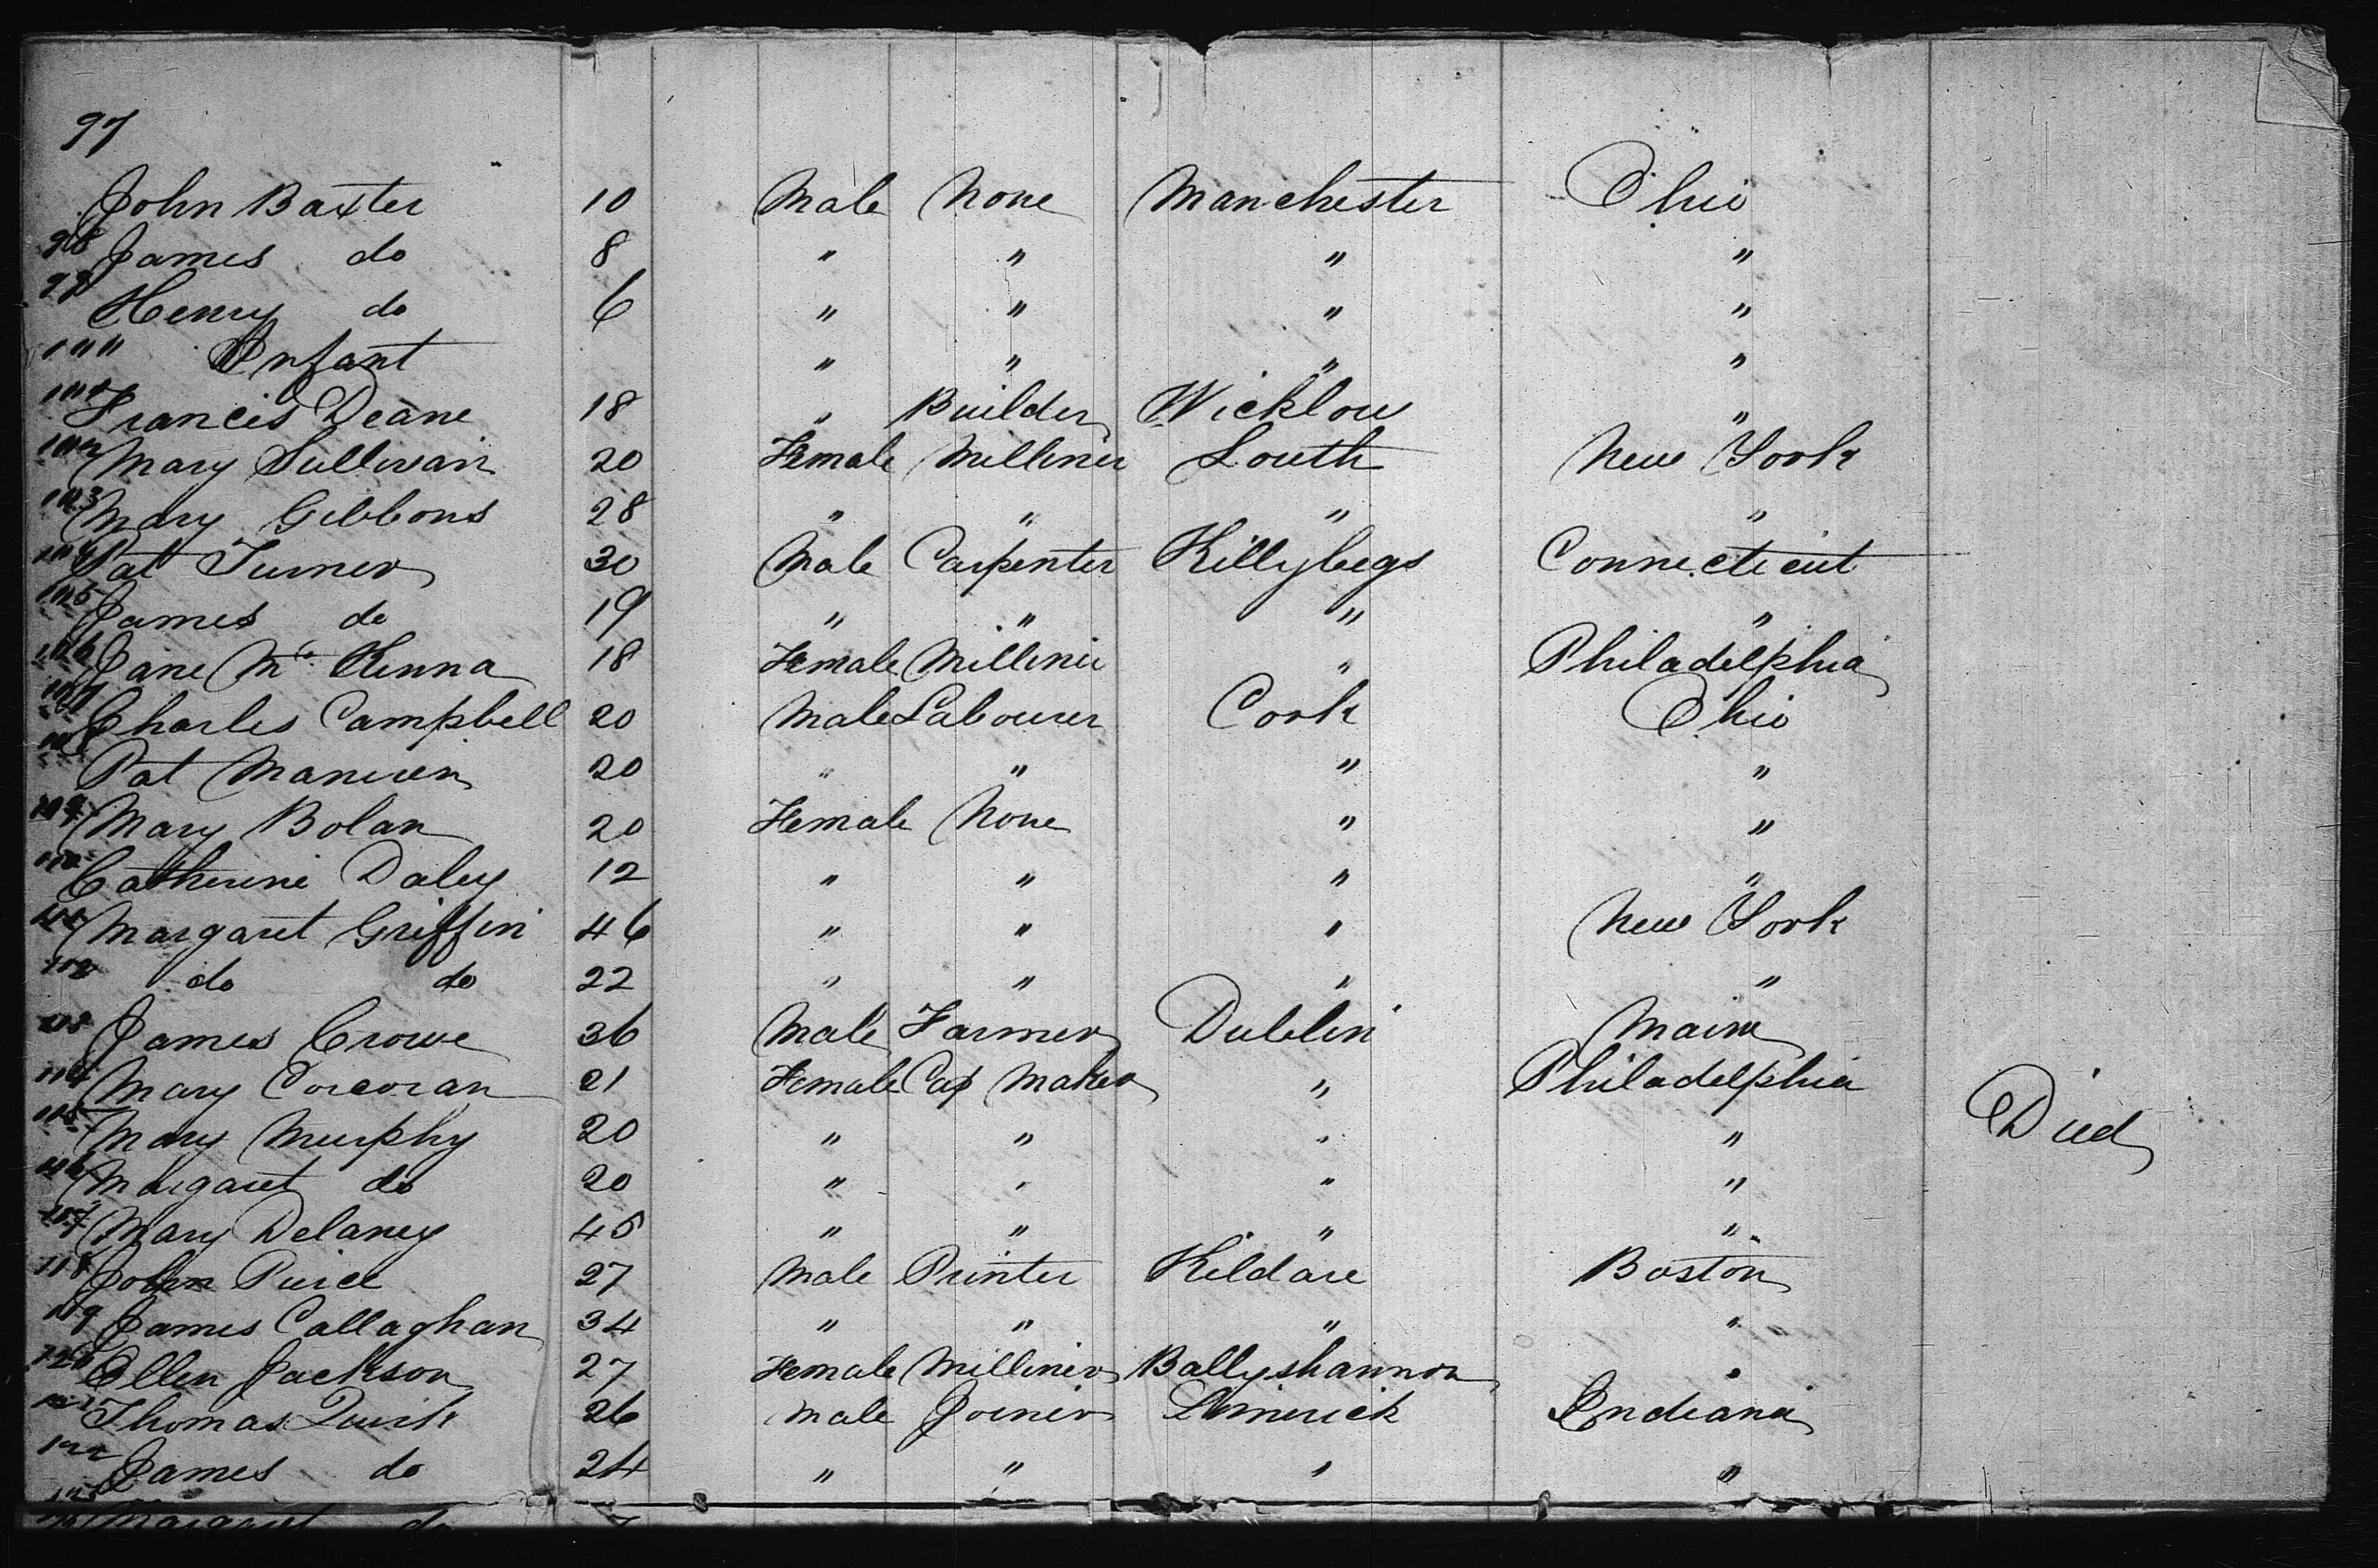 97
John Baxter 10 Male None Manchester Ohio
98 James do 8 " " " "
99 Henry do 6 " " " "
100 Infant " " " "
101 Francis Deane 18 " Builder Wicklow "
102 Mary Sullivan 20 Female Milliner Louth New York
103 Mary Gibbons 28 " " " "
104 Pat Turner 30 Male Carpenter Killybegs Connecticut
105 James do 19 " " " "
106 Jane Mc Kenna 18 Female Milliner " Philadelphia
107 Charles Campbell 20 Male Labourer Cork Ohio
108 Pat 20 " " " "
109 Mary Bolan 20 Female None " "
110 Catherine Daley 12 " " " "
111 Margaret Griffin 46 " " " New York
112 do do 22 " " " "
113 James Crowe 36 Male Farmer Dublin Maine
114 Mary Corcoran 21 Female Cap Maker " Philadelphia
115 Mary Murphy 20 " " " " Died
116 Margaret do 20 " " " "
117 Mary Delaney 45 " " " "
118 John 27 Male Printer Kildare Boston
119 James Callaghan 34 " " " "
120 Ellen Jackson 27 Female Milliner Ballyshannon "
121 Thomas Quirk 26 Male Joiner Limerick Indiana
122 James do 24 " " " "
123 Margaret do